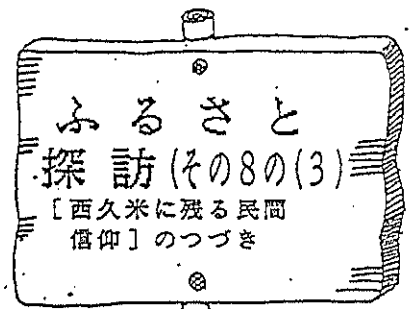 ふるさと
探訪(その8の(3)
[西久米に残る民間
信仰]のつづき